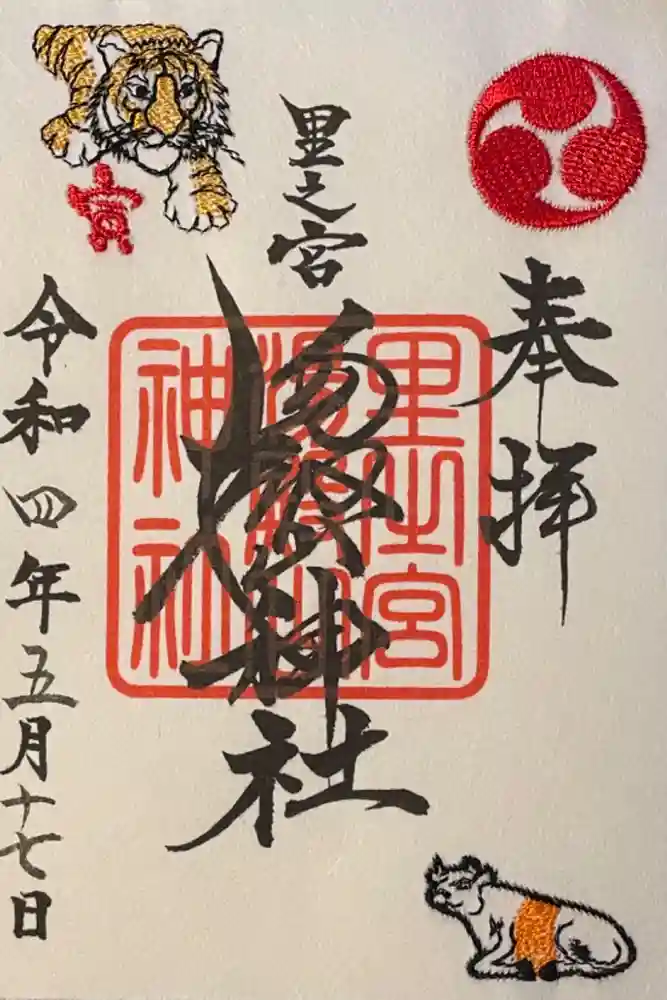 奉拝
里之宮
湯殿山神社
里之宮
湯殿山
神社
寅
令和四年五月十七日